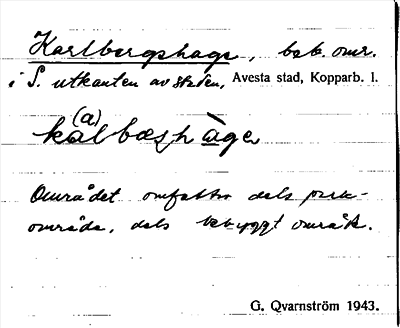 Karlbergshage, beb. omr.
i S. utkanten av staden, Avesta stad, Kopparb. l.
(a)
kalbæshage
Området omfattar dels park-
område, dels bebyggt område.
G. Qvarnström 1943.